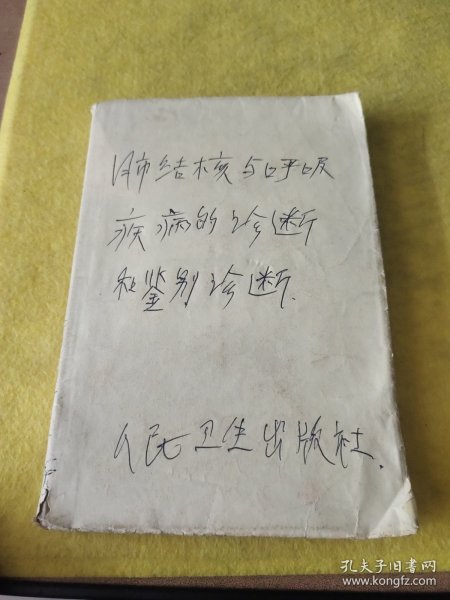 肺结核与呼吸
疾病的诊断
和鉴别诊断.
人民卫生出版社.
孔夫子旧书网
www.kongfz.com